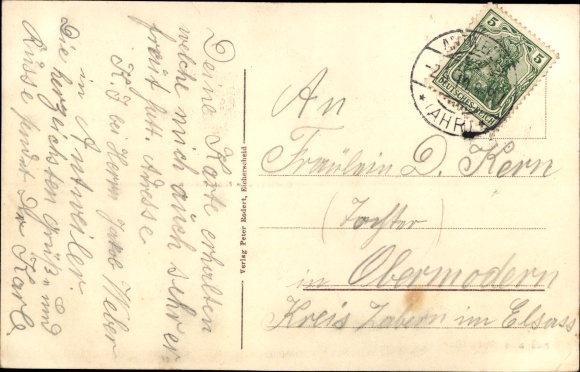 Deine Karte erhalten
welche mich auch sehr er-
freut hat. Adresse
K. J bei Herrn Jakob Weber
in Antweiler
Die herzlichsten Grüße und
Küsse sendet Dir Karl
Verlag Peter Rodert, Eicherscheid
5
5
DEUTSCHES REICH
(AHR)
An
Fräulein D. Kern
(Tochter)
in Obermodern
Kreis Zabern im Elsass